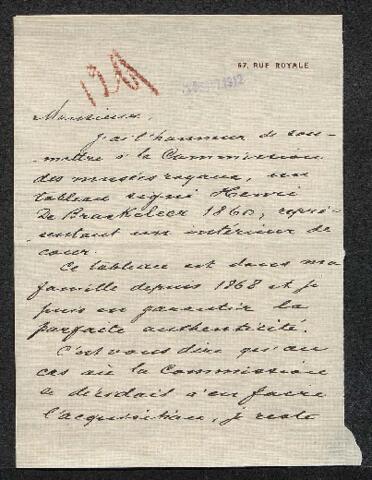 67, RUE ROYALE
1261
1912
Monsieur,
J'ai l'honneur de sou-
mettre à la Commission
des musées royaux, un
tableau signé Henri
De Braekeleer 1860, repré-
sentant un intérieur de
cour.
Ce tableau est dans ma
famille depuis 1868 et je
puis en garantir la
parfaite authenticité.
C'est vous dire qu'au
cas où la Commission
se décidait d'en faire
l'acquisition, je reste